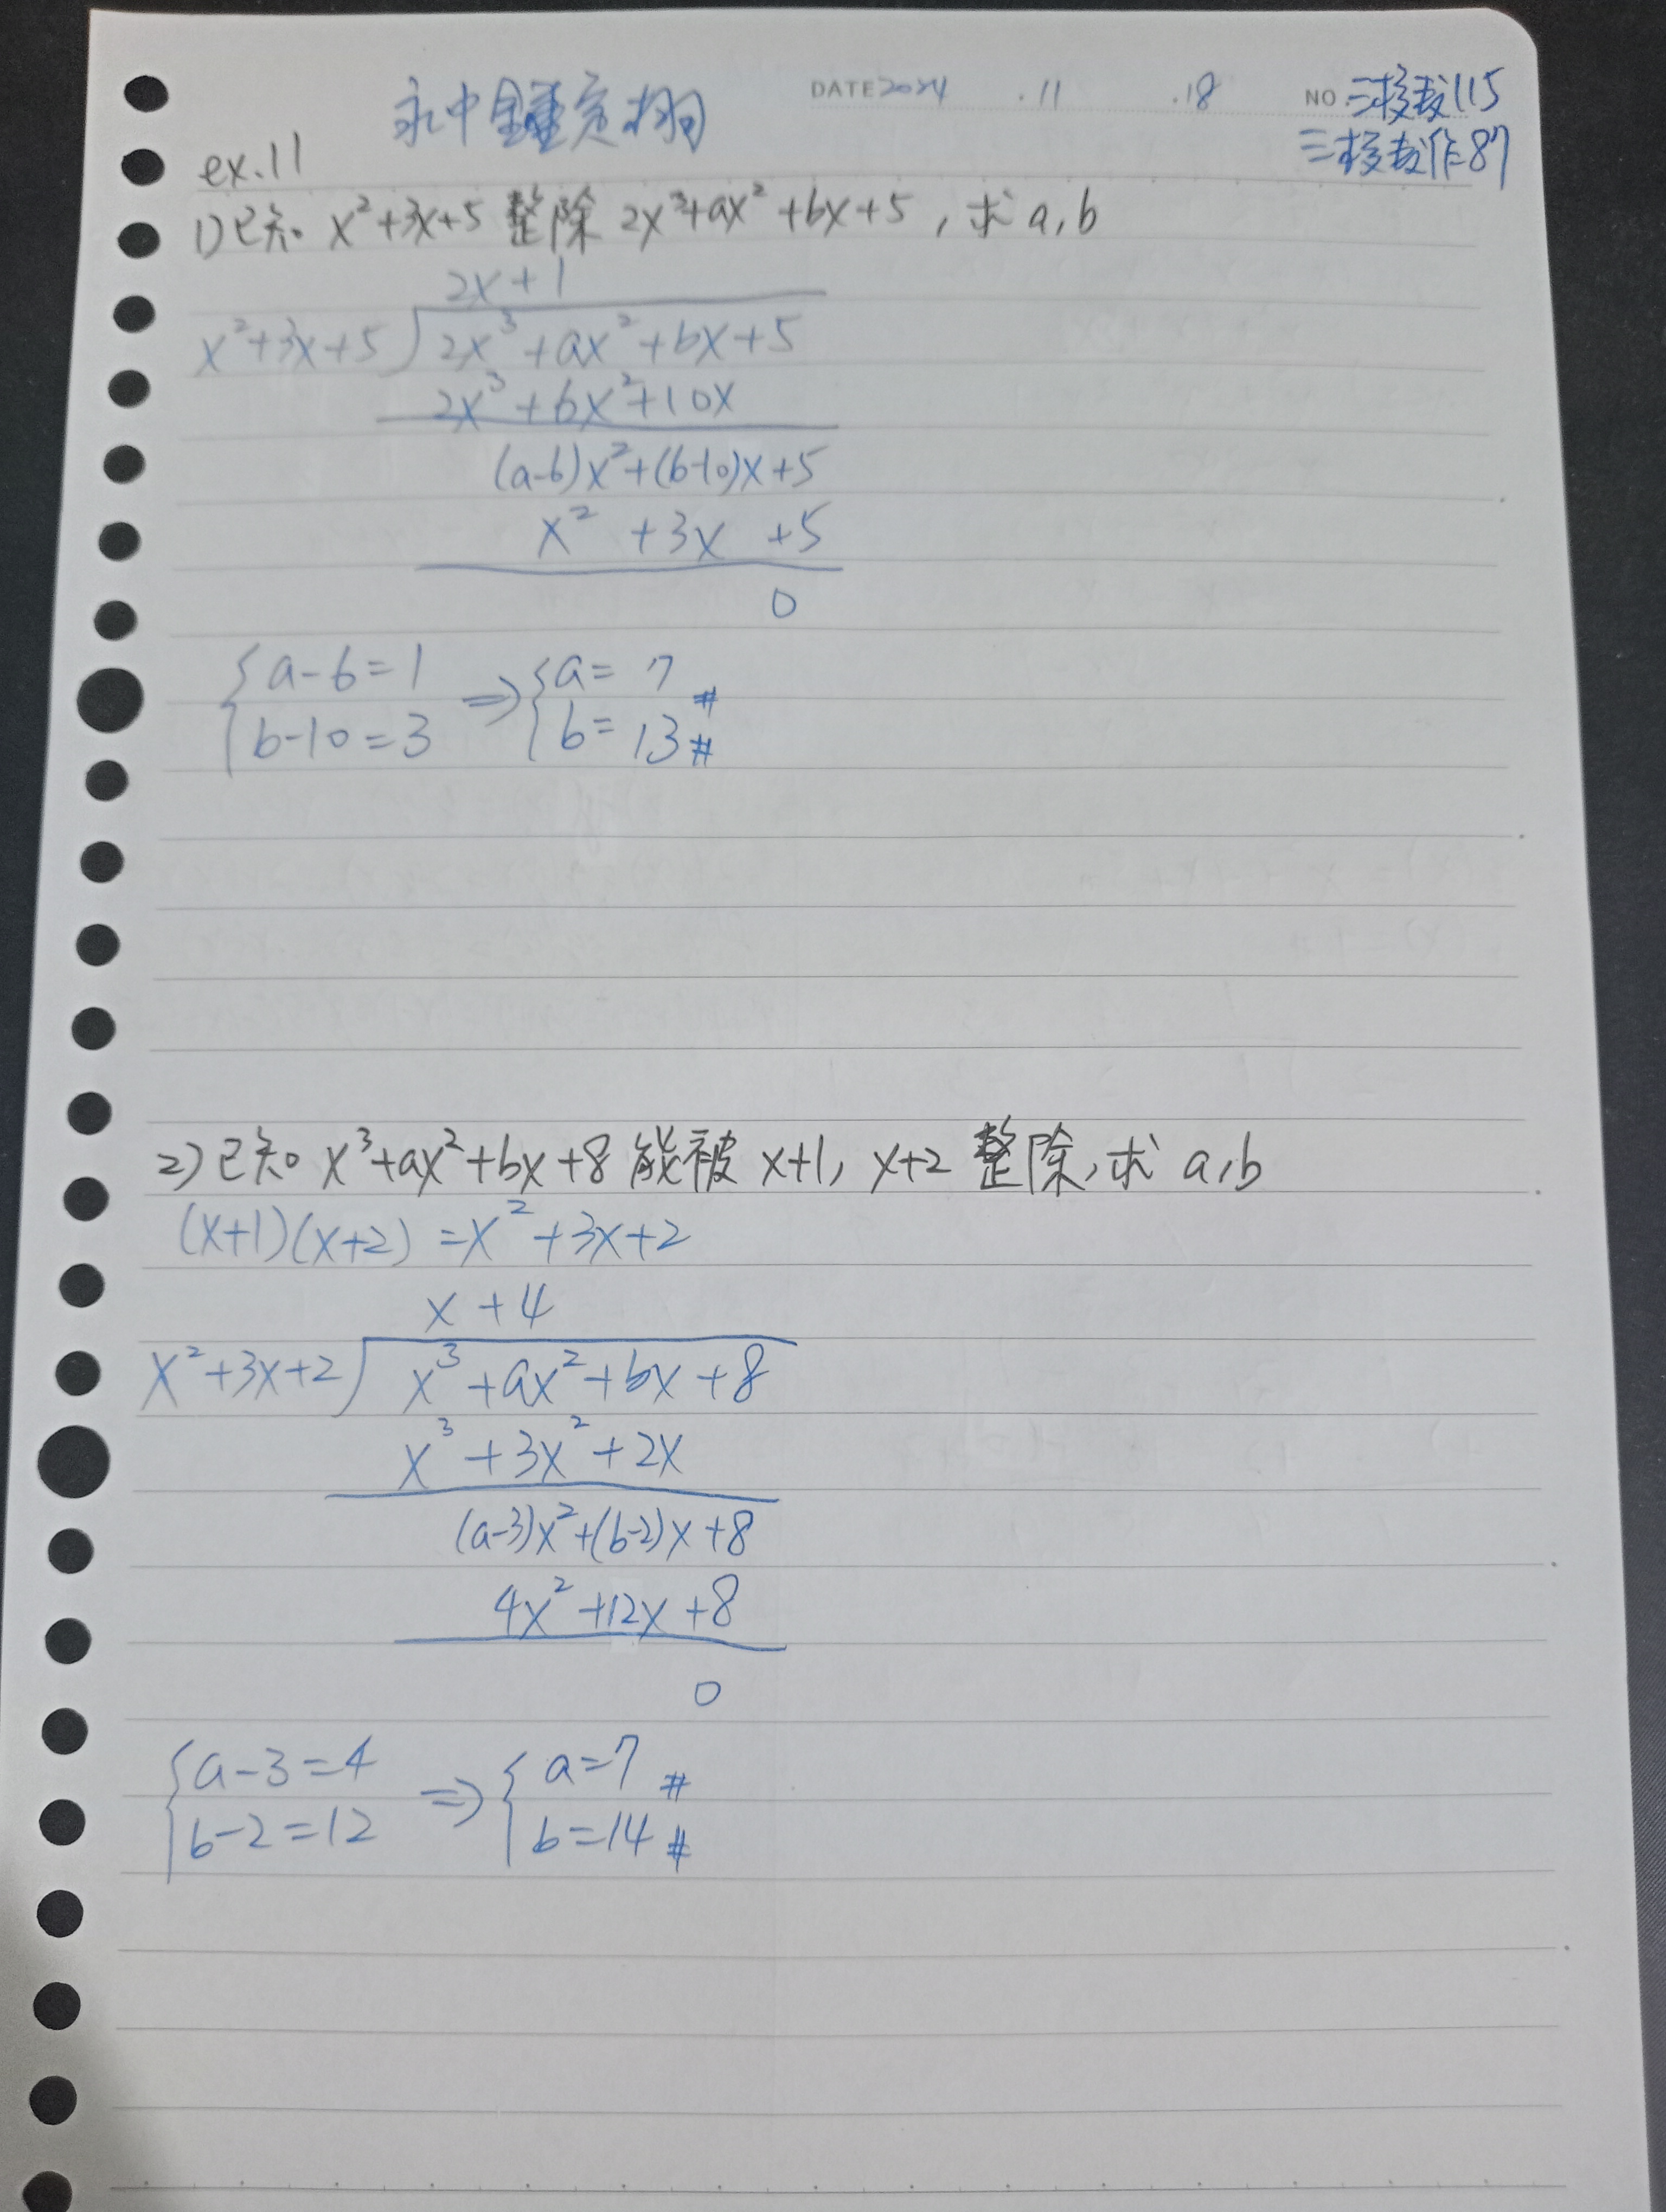 永中鍾 DATE 2024 .11 .18 NO.三核款115
三核款作87
ex.11
1)已知 x²+3x+5 整除 2x³+ax²+bx+5，求 a,b
2x+1
x²+3x+5 ) 2x³+ax²+bx+5
2x³+6x²+10x
(a-6)x²+(b-10)x+5
x² +3x +5
0
{a-6=1 ⇒ {a= 7 #
{b-10=3 {b= 13 #
2)已知 x³+ax²+bx+8 能被 x+1, x+2 整除,求 a,b
(x+1)(x+2) =x²+3x+2
x +4
x²+3x+2 ) x³+ax²+bx+8
x³+3x²+2x
(a-3)x²+(b-2)x+8
4x²+12x+8
0
{a-3=4 ⇒ {a=7 #
{b-2=12 {b=14 #